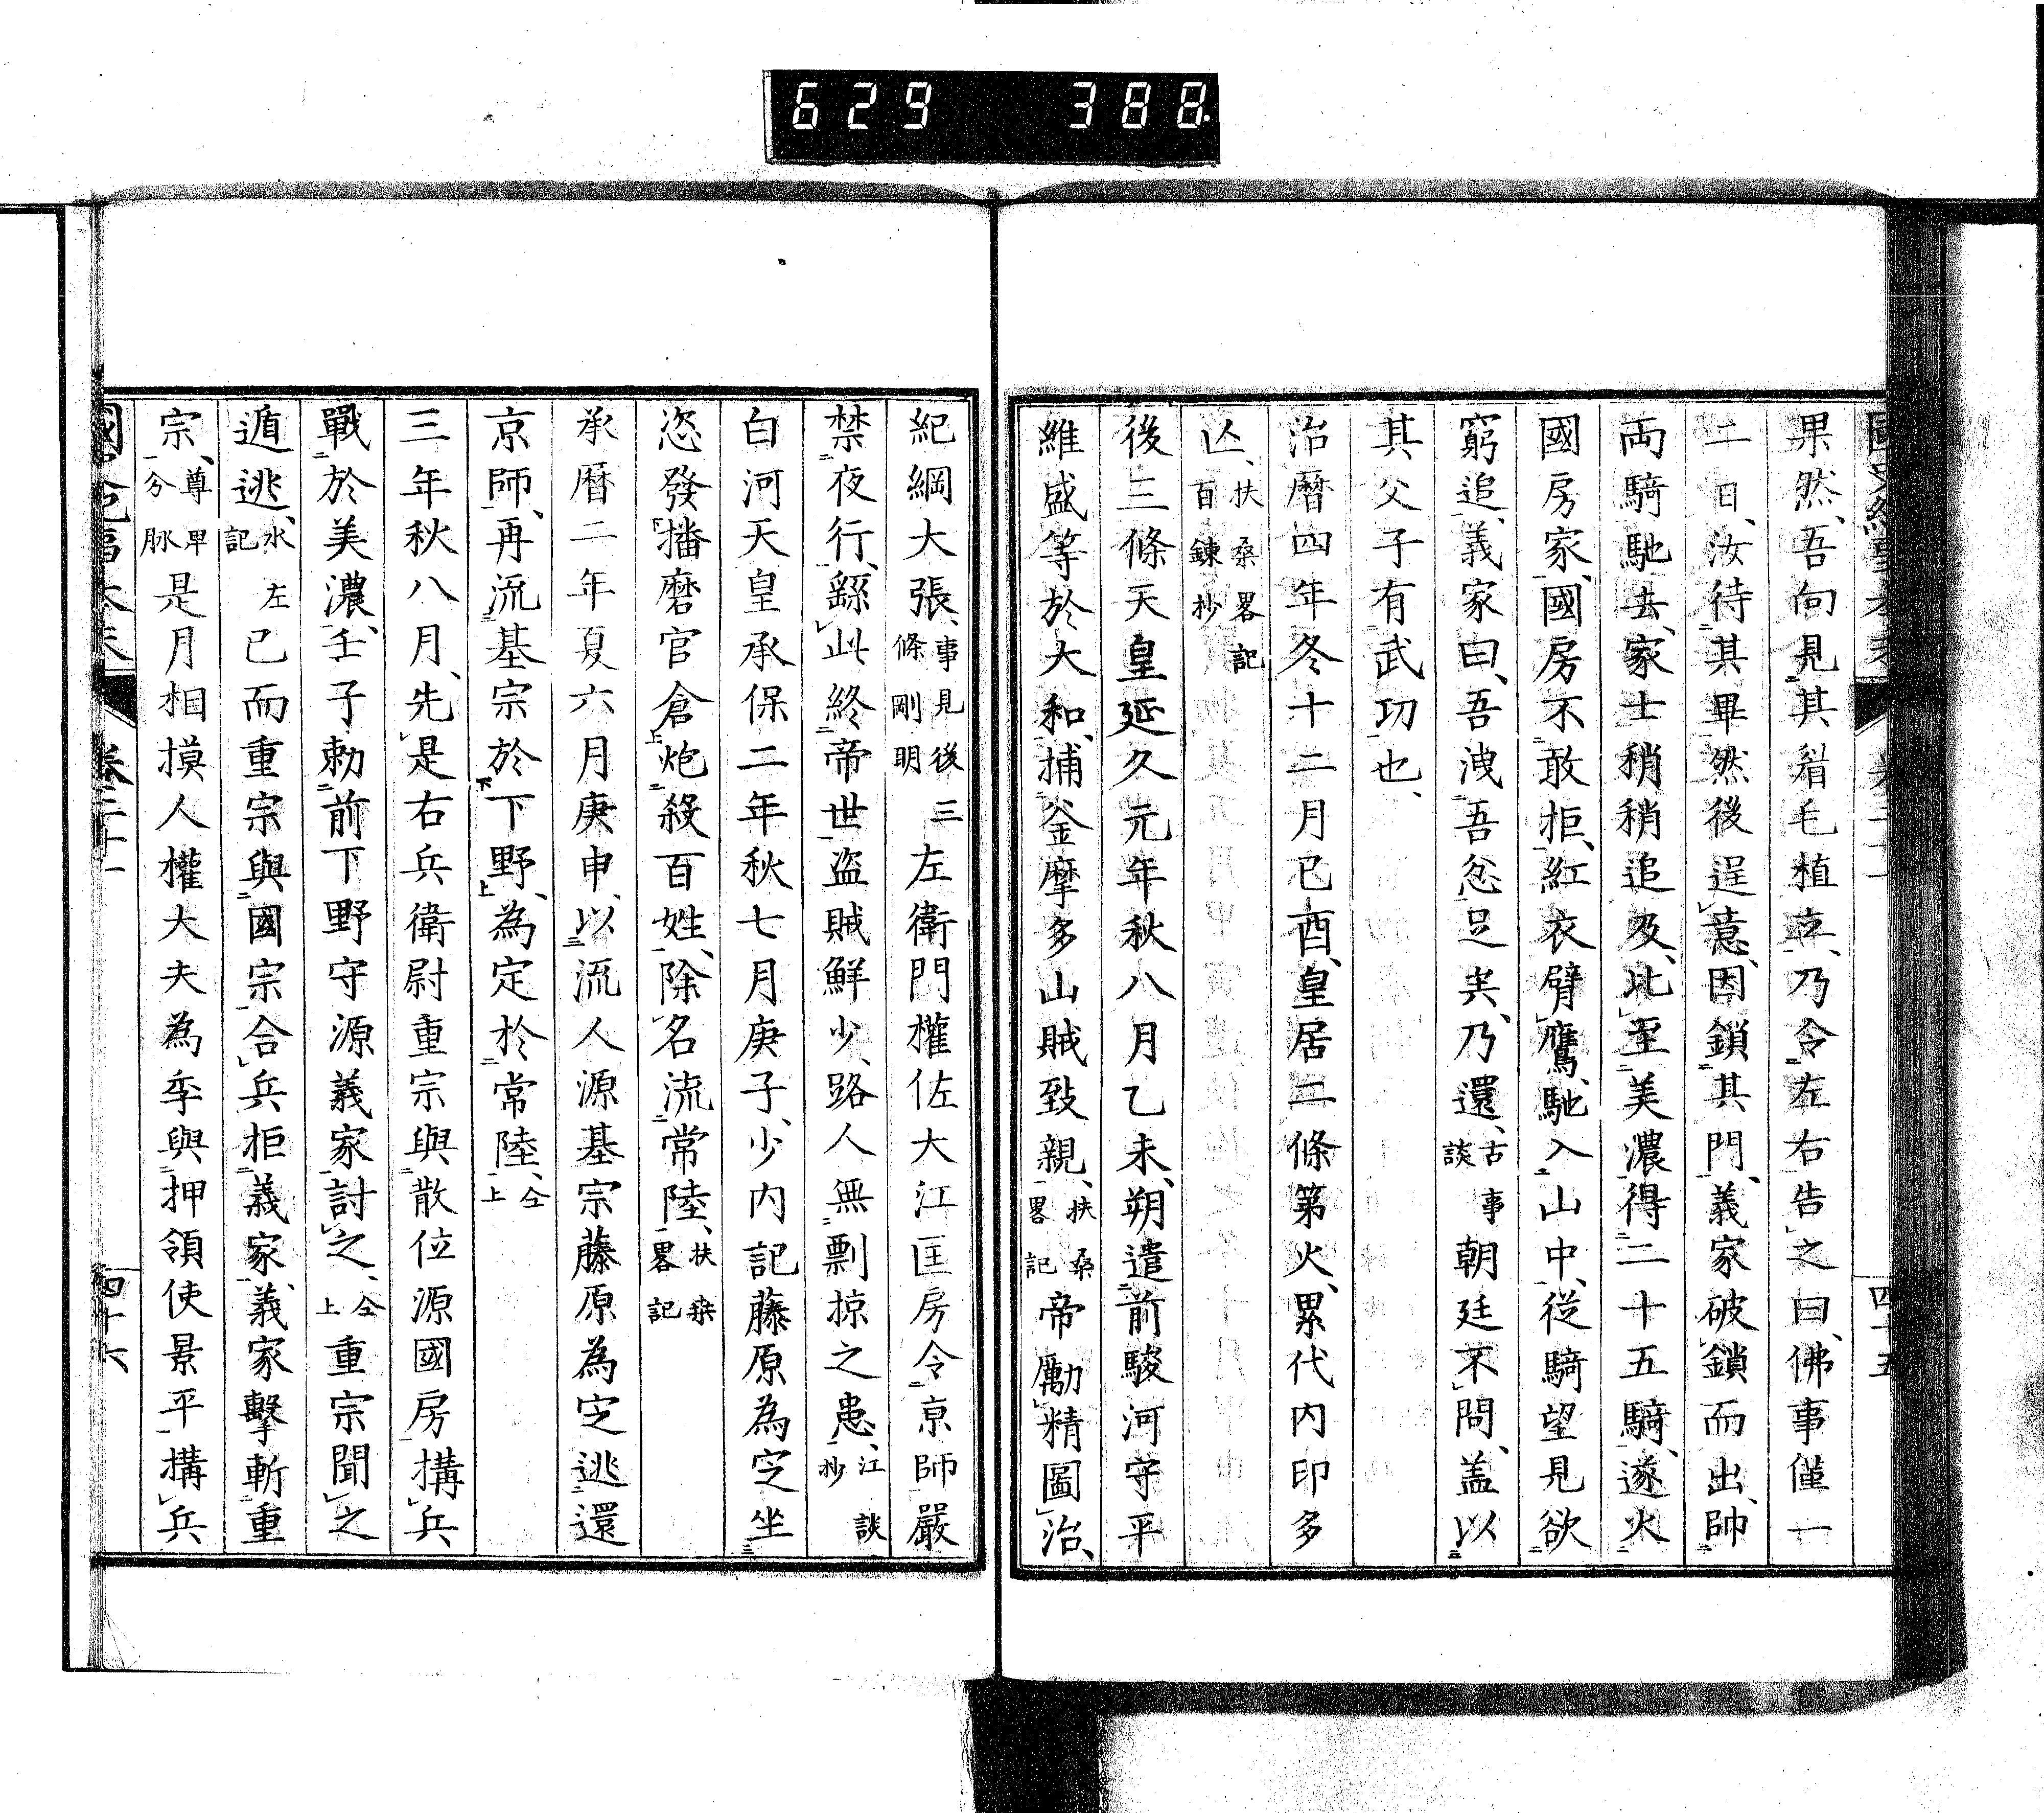 629 388
果然、吾向見其眉毛植立、乃令左右告之曰、佛事僅一
二日、汝待其畢、然後逞意、因鎖其門、義家破鎖而出、帥
両騎馳去、家士稍稍追及、比至美濃得二十五騎、遂火
國房家、國房不敢拒、紅衣臂鷹、馳入山中、従騎望見欲
窮追、義家曰、吾洩吾忿足矣、乃還、古事談朝廷不問、盖以
其父子有武功也、
治暦四年冬十二月已酉、皇居二條第火、累代内印多
亾、扶桑畧記百錬抄
後三條天皇延久元年秋八月乙未朔、遣前駿河守平
維盛等於大和、捕釜摩多山賊致親、扶桑畧記帝勵精圖治、
紀綱大張、事見後三條剛明左衛門権佐大江匡房令京師嚴
禁夜行、繇此終帝世盗賊鮮少、路人無剽掠之患、江談抄
白河天皇承保二年秋七月庚子、少内記藤原為定坐
恣發播磨官倉炮殺百姓、除名流常陸、扶桒畧記
承暦二年夏六月庚申、以流人源基宗藤原為定逃還
京師、再流基宗於下野、為定於常陸、仝上
三年秋八月、先是右兵衛尉重宗與散位源國房搆兵
戰於美濃、壬子勅前下野守源義家討之、仝上重宗聞之
遁逃、水左記已而重宗與國宗合兵拒義家、義家擊斬重
宗、尊卑分脉是月相摸人權大夫為季與押領使景平搆兵
卷二十一
四十六